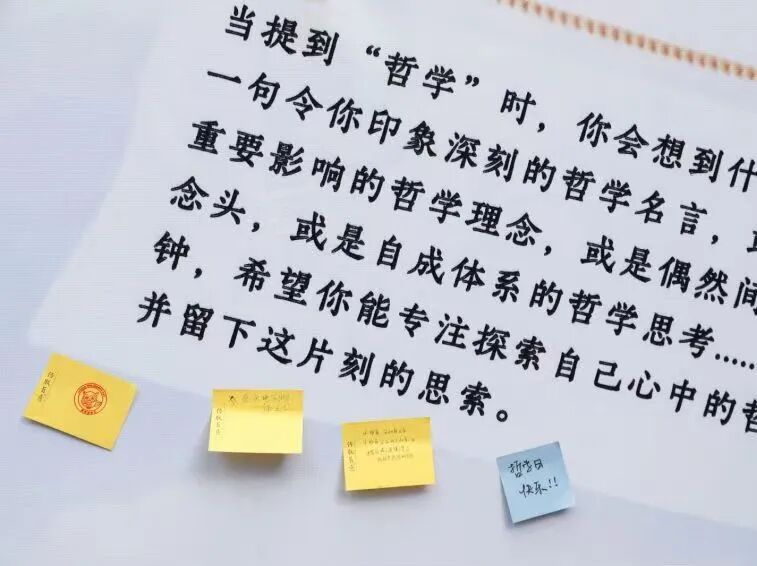 当提到“哲学”时，你会想到什
一句令你印象深刻的哲学名言，或
重要影响的哲学理念，或是偶然间
念头，或是自成体系的哲学思考……
钟，希望你能专注探索自己心中的哲
并留下这片刻的思索。
哲学日
快乐!!